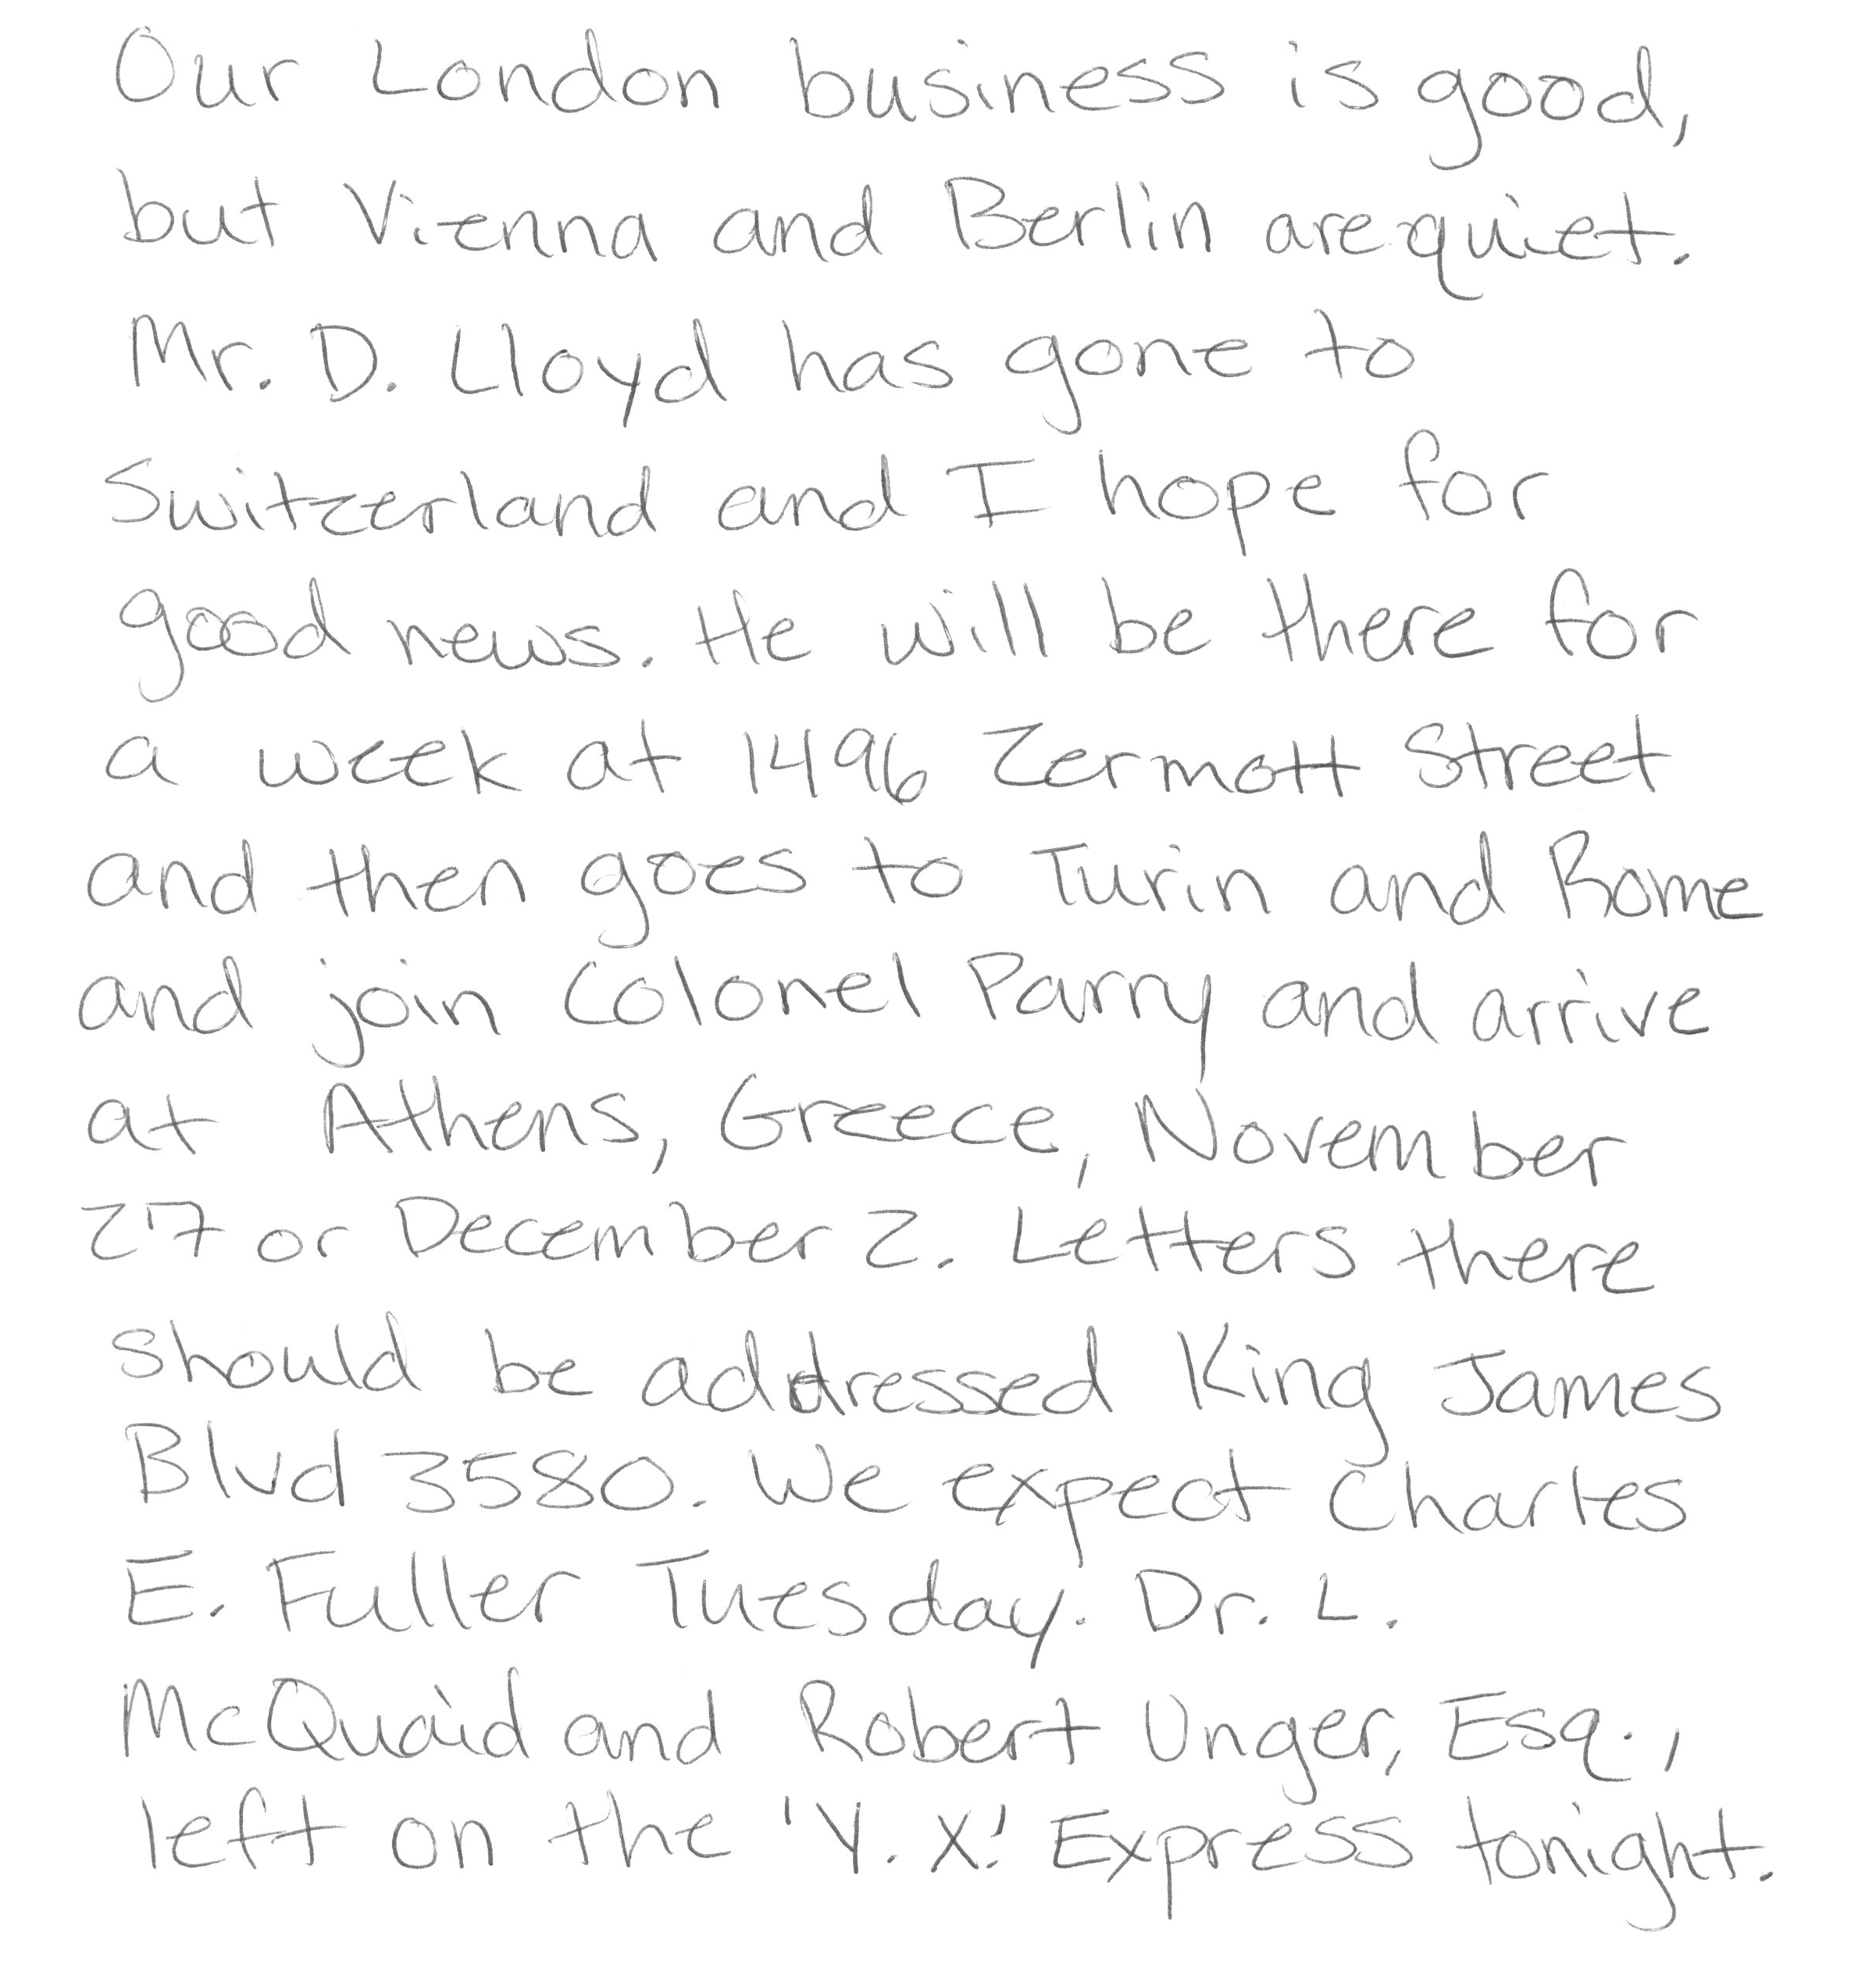 Our London business is good,
but Vienna and Berlin are quiet.
Mr. D. Lloyd has gone to
Switzerland and I hope for
good news. He will be there for
a week at 1496 Zermott Street
and then goes to Turin and Rome
and join Colonel Parry and arrive
at Athens, Greece, November
27 or December 2. Letters there
should be addressed King James
Blvd 3580. We expect Charles
E. Fuller Tuesday. Dr. L.
McQuaid and Robert Unger, Esq.,
left on the 'Y. X.' Express tonight.